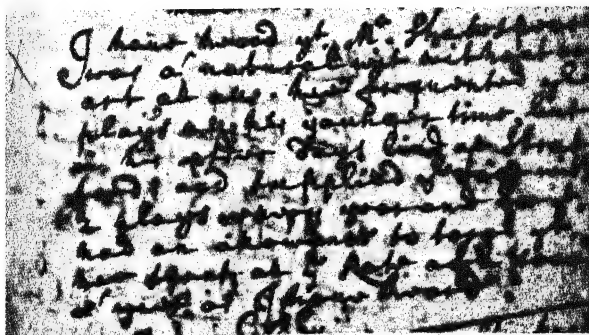 I have heard yt Mr Shakespear
was a natural wit without
art at all. hee frequented ye
plays all his younger time, but
in his days livd at Strat
ford: and supplied ye stage
2 plays every year and
had an allowance so large yt
hee spent at ye Rate of
a year as I have heard